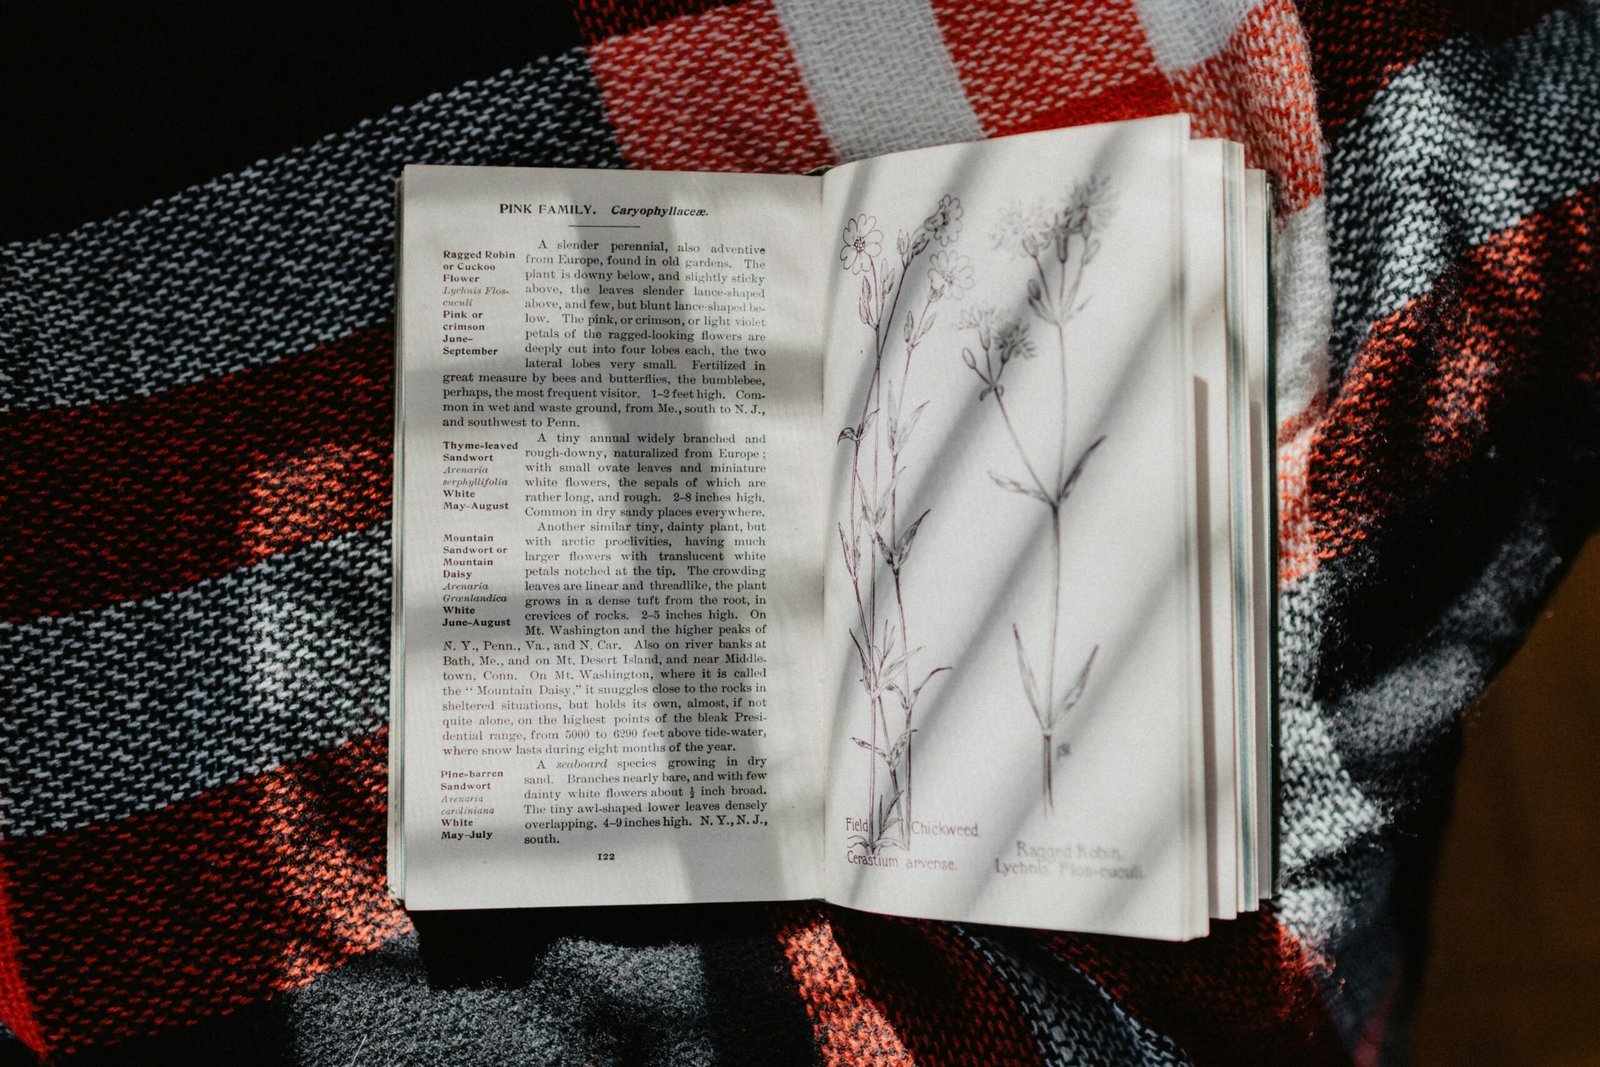 PINK FAMILY. Caryophyllaceæ.
Ragged Robin
or Cuckoo
Flower
Lychnis Flos-
cuculi
Pink or
crimson
June–
September
A slender perennial, also adventive
from Europe, found in old gardens. The
plant is downy below, and slightly sticky
above, the leaves slender lance-shaped
above, and few, but blunt lance-shaped be-
low. The pink, or crimson, or light violet
petals of the ragged-looking flowers are
deeply cut into four lobes each, the two
lateral lobes very small. Fertilized in
great measure by bees and butterflies, the bumblebee,
perhaps, the most frequent visitor. 1–2 feet high. Com-
mon in wet and waste ground, from Me., south to N. J.,
and southwest to Penn.
Thyme-leaved
Sandwort
Arenaria
serphyllifolia
White
May–August
A tiny annual widely branched and
rough-downy, naturalized from Europe;
with small ovate leaves and miniature
white flowers, the sepals of which are
rather long, and rough. 2–8 inches high.
Common in dry sandy places everywhere.
Mountain
Sandwort or
Mountain
Daisy
Arenaria
Grœnlandica
White
June–August
Another similar tiny, dainty plant, but
with arctic proclivities, having much
larger flowers with translucent white
petals notched at the tip. The crowding
leaves are linear and threadlike, the plant
grows in a dense tuft from the root, in
crevices of rocks. 2–5 inches high. On
Mt. Washington and the higher peaks of
N. Y., Penn., Va., and N. Car. Also on river banks at
Bath, Me., and on Mt. Desert Island, and near Middle-
town, Conn. On Mt. Washington, where it is called
the “Mountain Daisy,” it snuggles close to the rocks in
sheltered situations, but holds its own, almost, if not
quite alone, on the highest points of the bleak Presi-
dential range, from 5000 to 6290 feet above tide-water,
where snow lasts during eight months of the year.
Pine-barren
Sandwort
Arenaria
caroliniana
White
May–July
A seaboard species growing in dry
sand. Branches nearly bare, and with few
dainty white flowers about ½ inch broad.
The tiny awl-shaped lower leaves densely
overlapping. 4–9 inches high. N. Y., N. J.,
south.
122
Field Chickweed.
Cerastium arvense.
Ragged Robin.
Lychnis Flos-cuculi.